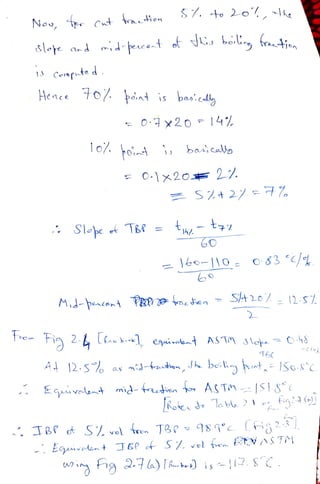 Now, for cut fraction 5% to 20%, the
slope and mid-percent of this boiling fraction
is computed.
Hence 70% point is basically
= 0.7×20 = 14%
10% point is basically
= 0.1×20 = 2%
= 5%+2% = 7%
∴ Slope of TBP = t14% − t7%
60
= 160−110 = 0.83 °C/%
60
Mid-percent fraction = 5%+20% = 12.5%
2
From Fig 2.4, equivalent ASTM slope = 0.48
At 12.5% as mid-fraction, the boiling point = 150.5°C
∴ Equivalent mid-fraction for ASTM = 151.5°C
[Refer to Table 2.1 Fig 2.7(a)]
∴ TBP of 5% vol from TBP = 98.9°C (Fig 2.3)
∴ Equivalent TBP of 5% vol from ASTM
using Fig 2.7(a) is = 117.5°C.